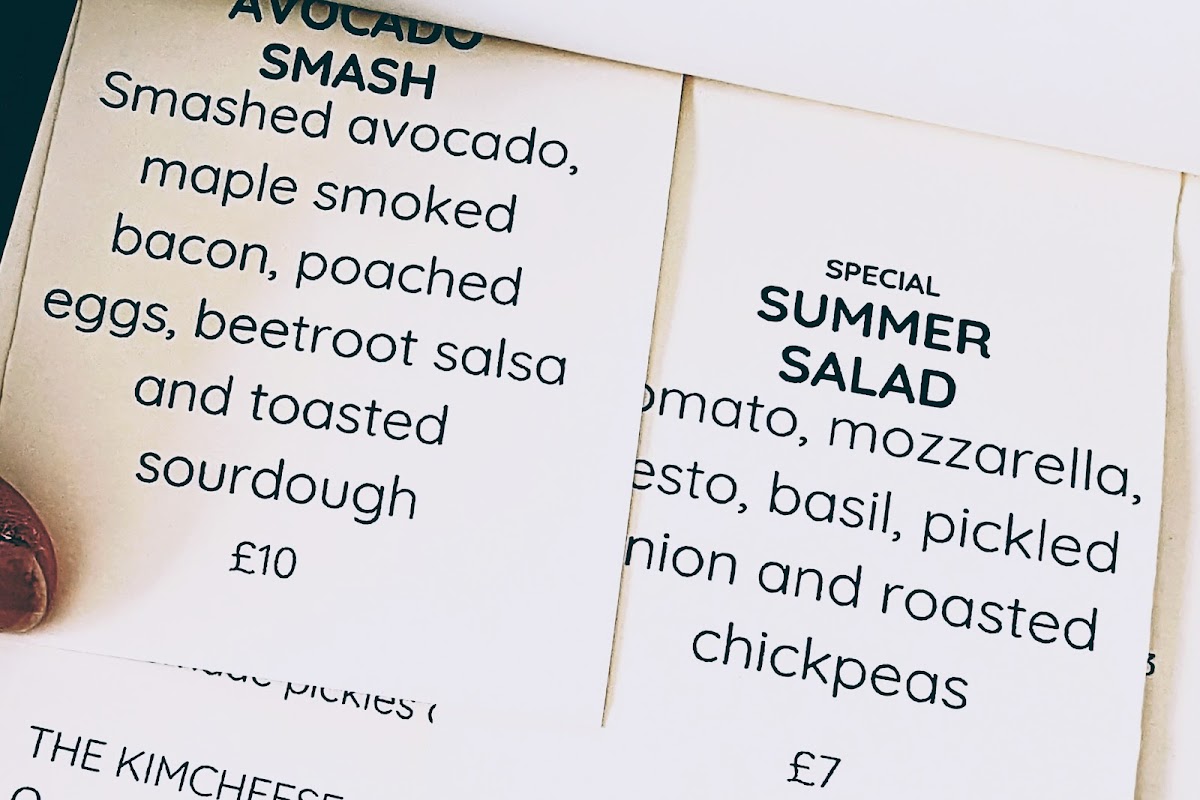 AVOCADO
SMASH
Smashed avocado,
maple smoked
bacon, poached
eggs, beetroot salsa
and toasted
sourdough
£10
pickles
THE KIMCHEESE
SPECIAL
SUMMER
SALAD
omato, mozzarella,
esto, basil, pickled
nion and roasted
chickpeas
£7